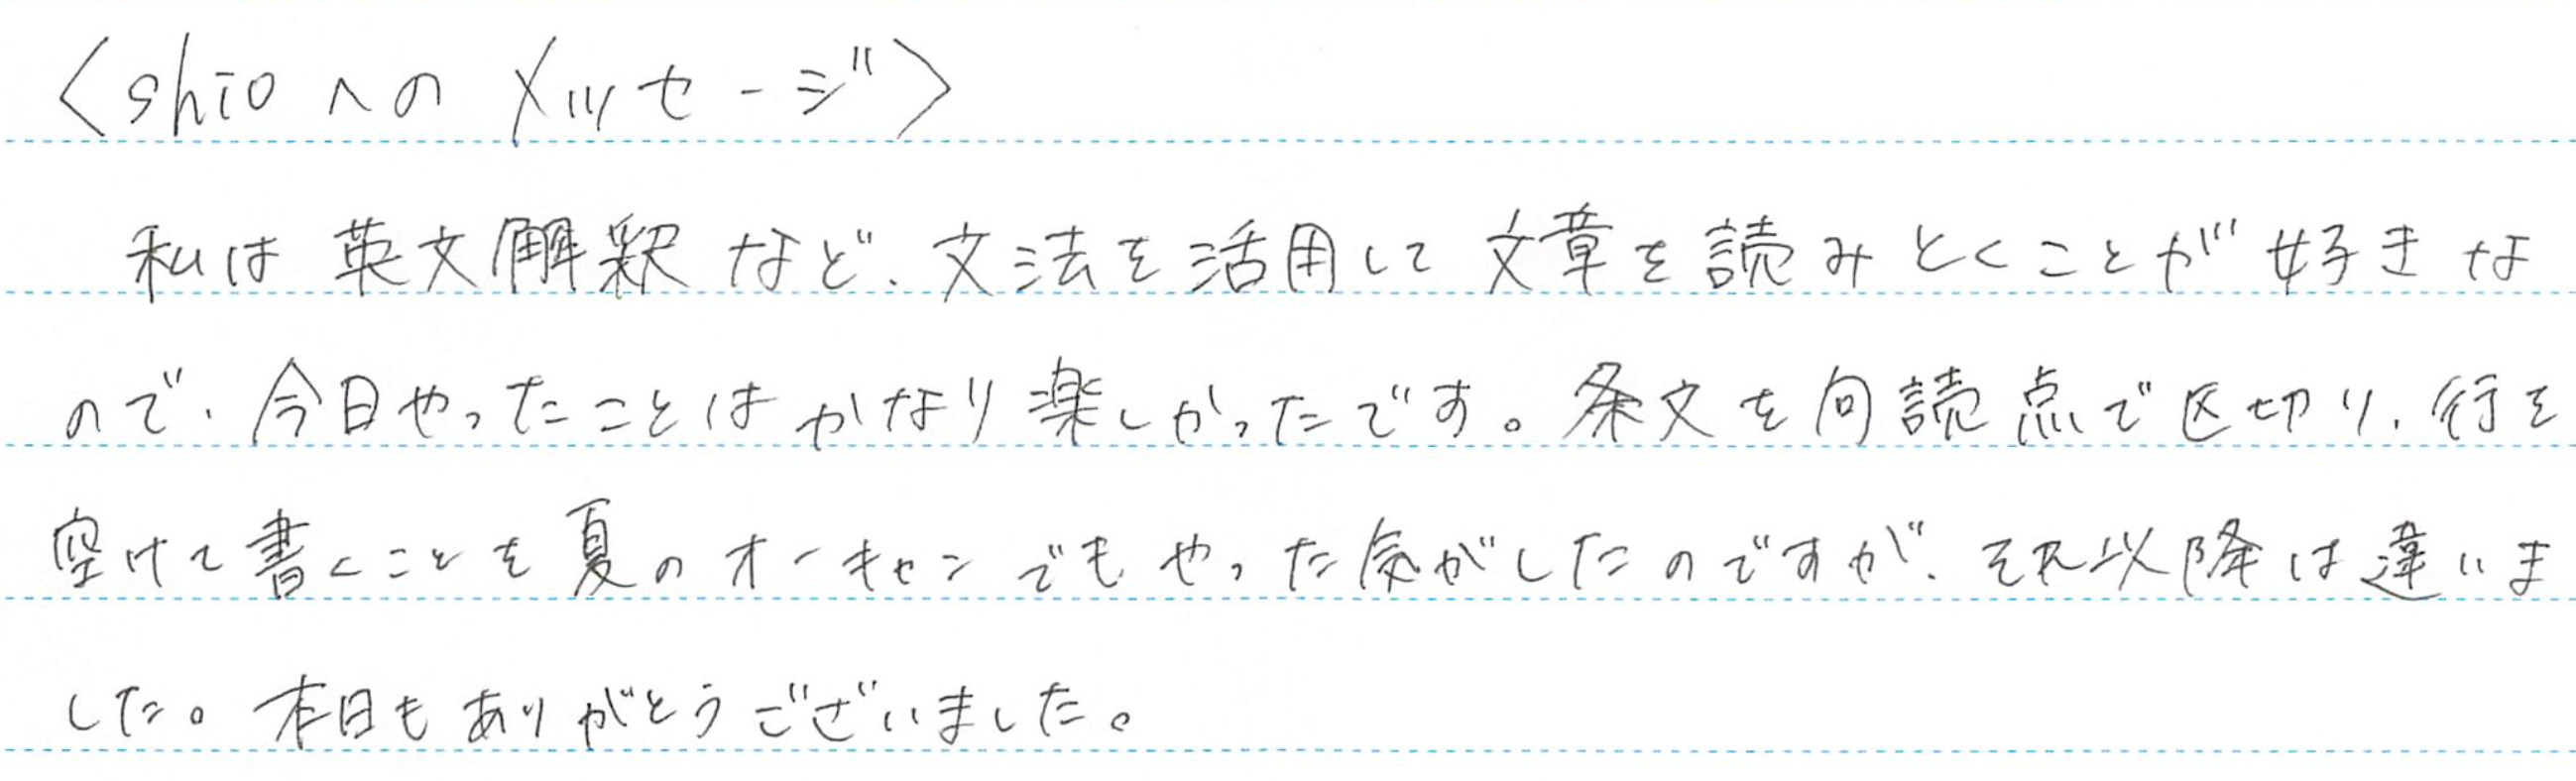 〈shioへのメッセージ〉
私は英文解釈など、文法を活用して文章を読みとくことが好きな
ので、今日やったことはかなり楽しかったです。条文を句読点で区切り、行を
空けて書くことを夏のオーキャンでもやった気がしたのですが、それ以降は違いま
した。本日もありがとうございました。